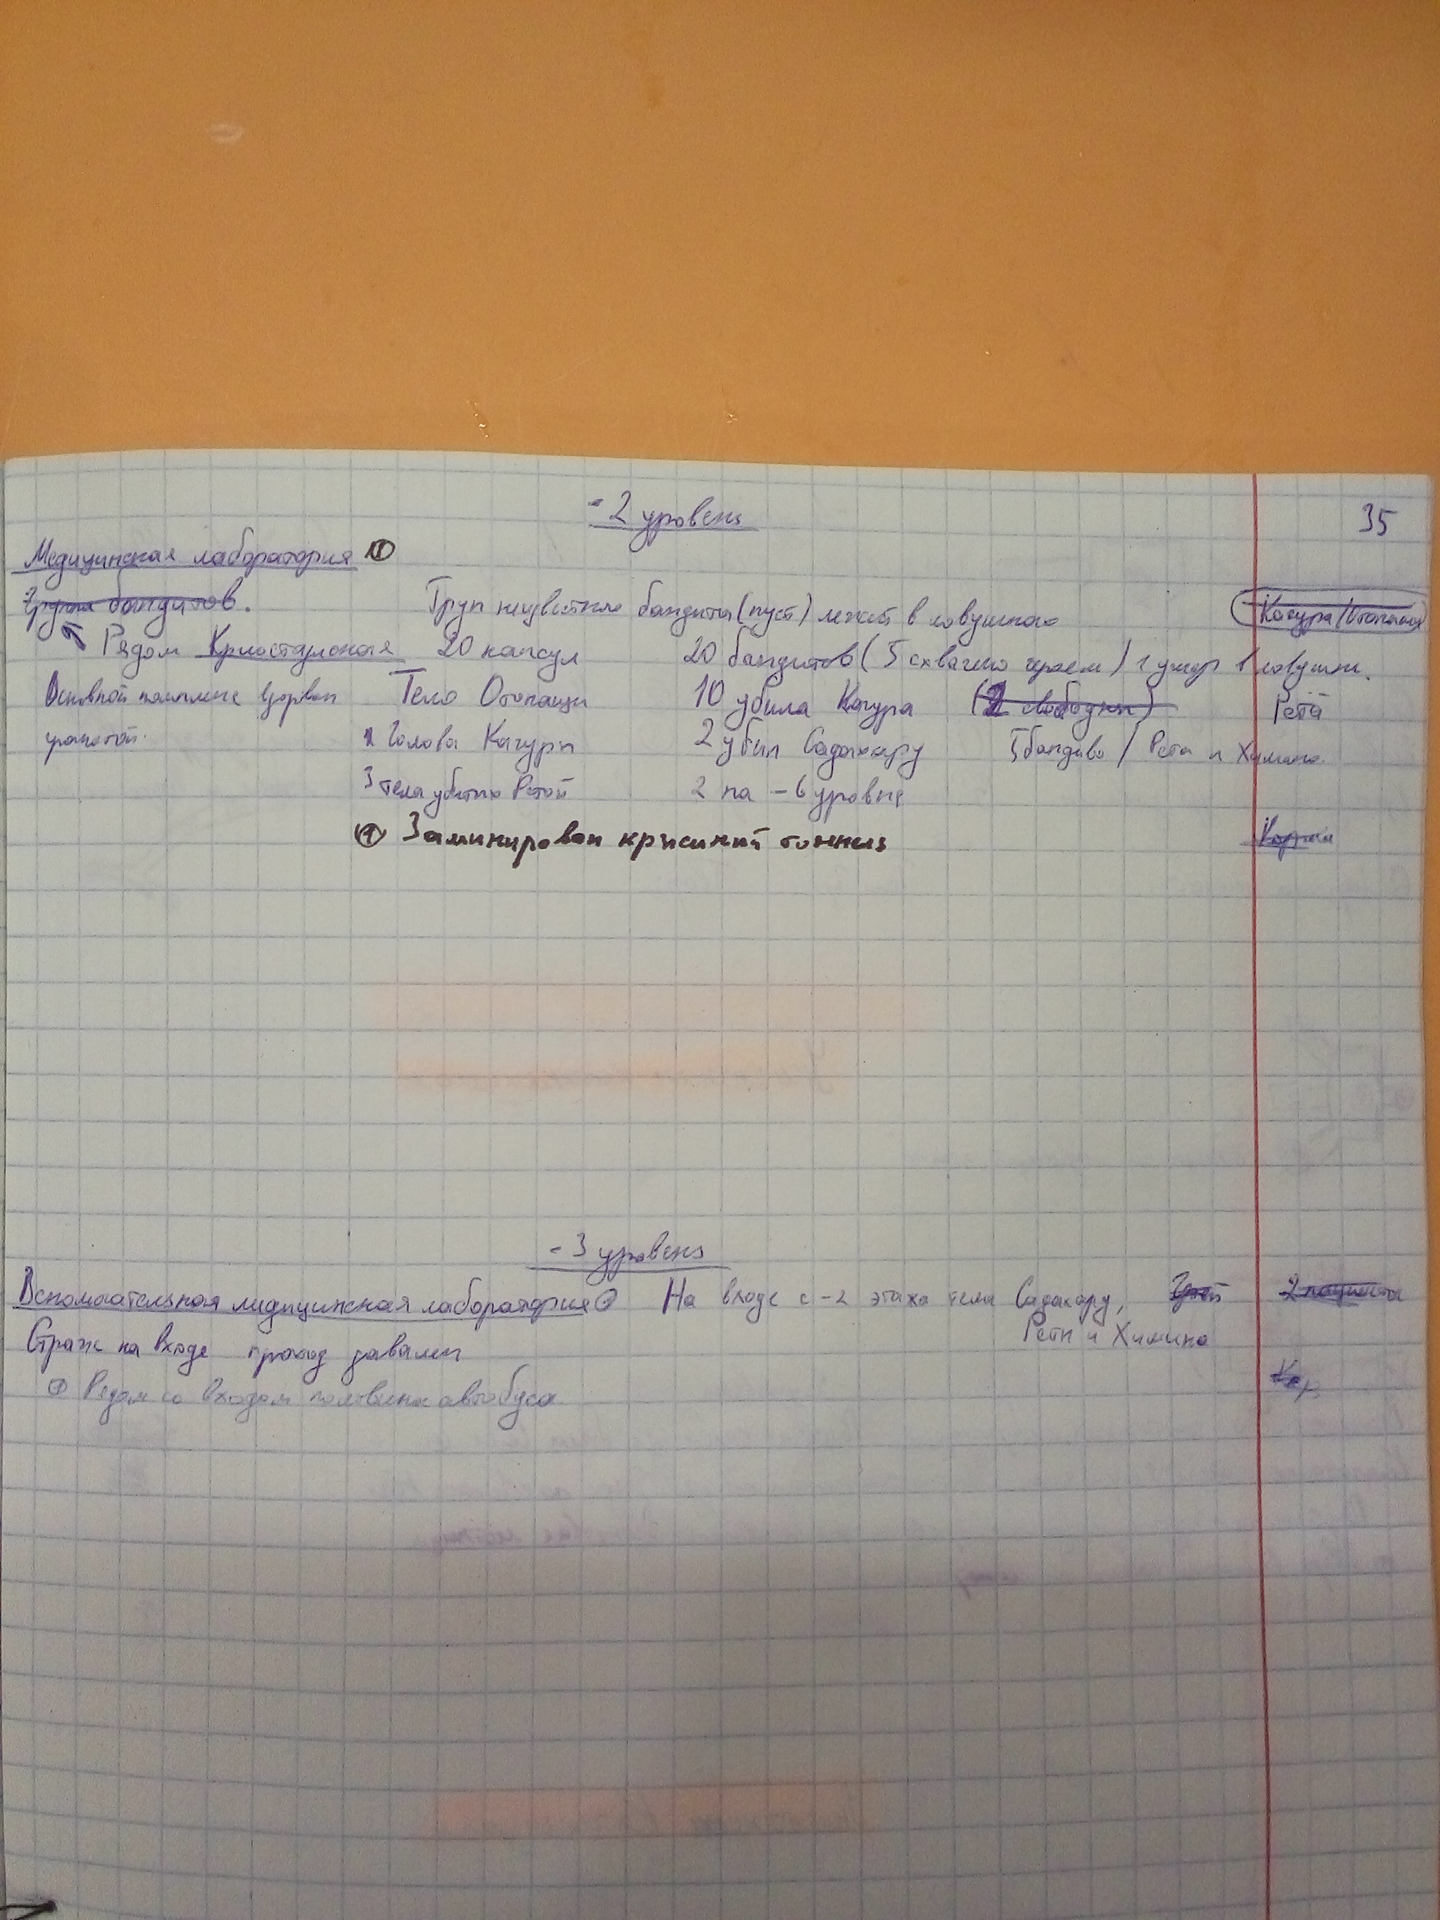 - 2 уровень
35
Медицинская лаборатория ①
Группа бандитов.
Труп неизвестного бандита (пуст) лежит в ловушке
Кагура/Отопащи
Рядом Криостазисная 20 капсул
20 бандитов (5 схвачено героем) 1 умер в ловушке.
Основной комплекс взорван гранатой.
Тело Отопащи
10 убила Кагура (2 свободны)
Рета
1 Голова Кагуры
2 убил Садакару
5 бандитов / Рета и Химэно
3 тела убитых Ретой
2 на -6 уровне
① Заминирован крысиный тоннель
- 3 уровень
Вспомогательная медицинская лаборатория
На входе с -2 этажа тела Садакару,
Реты и Химэно
Страж на входе проход завален
Рядом со входом половина автобуса